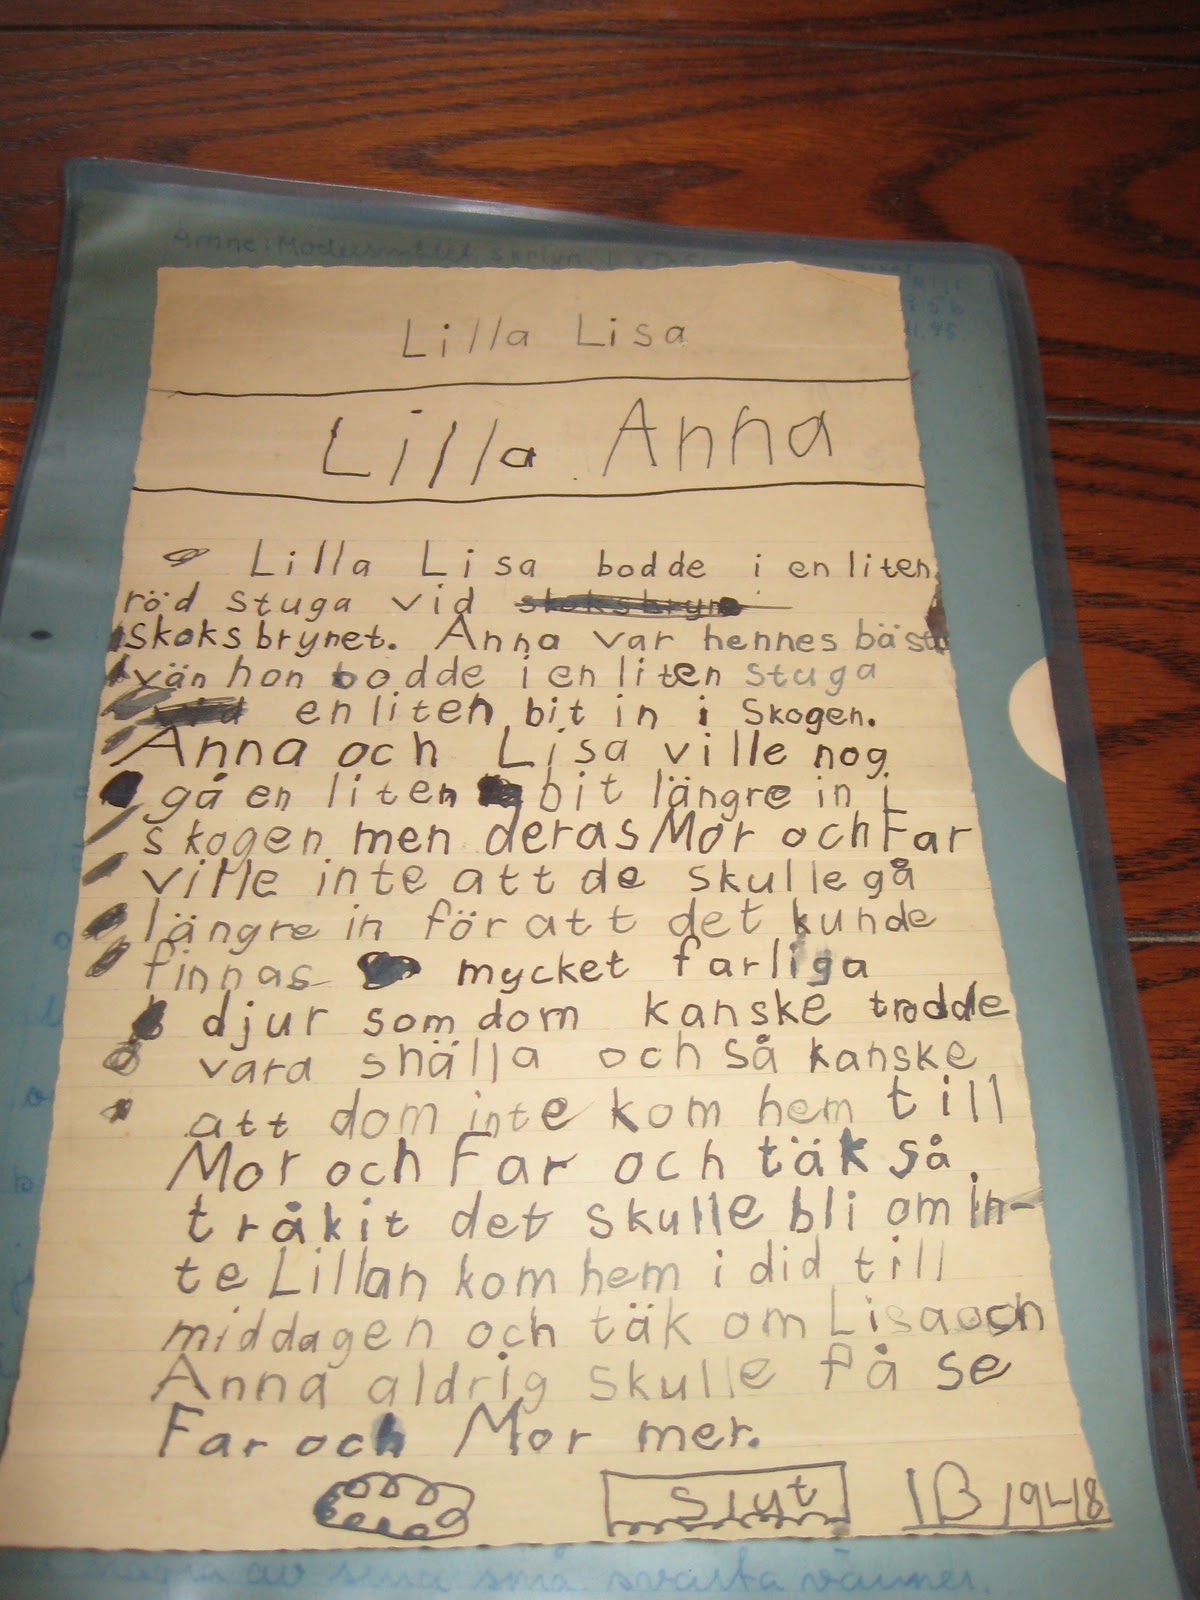 Ämne: Modersmålet skrivn.
Lilla Lisa
Lilla Anna
Lilla Lisa bodde i en liten
röd stuga vid skoksbryne
skoksbrynet. Anna var hennes bästa
vän hon bodde i en liten stuga
vid en liten bit in i skogen.
Anna och Lisa ville nog
gå en liten bit längre in i
skogen men deras Mor och Far
ville inte att de skulle gå
längre in för att det kunde
finnas mycket farliga
djur som dom kanske trodde
vara snälla och så kanske
att dom inte kom hem till
Mor och Far och täk så
tråkit det skulle bli om in-
te Lillan kom hem i did till
middagen och täk om Lisa och
Anna aldrig skulle få se
Far och Mor mer.
Slut
några av sina små svarta vänner.